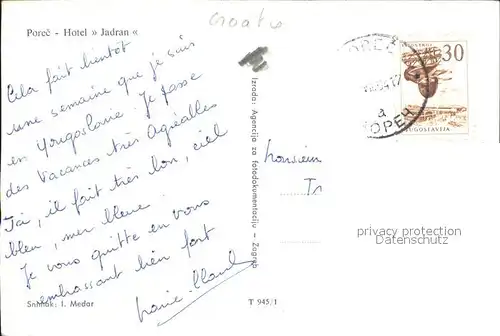 Croatie
Poreč - Hotel » Jadran «
Cela fait bientôt
une semaine que je suis
en Yougoslavie. Je passe
des vacances très agréables
Ici, il fait très bon, ciel
bleu, mer bleue.
Je vous quitte en vous
embrassant bien fort
Marie-Claude
Snimak: I. Medar
Izrada: Agencija za fotodokumentaciju - Zagreb
T 945/1
30
JUGOSLAVIJA
a
Monsieur
privacy protection
Datenschutz